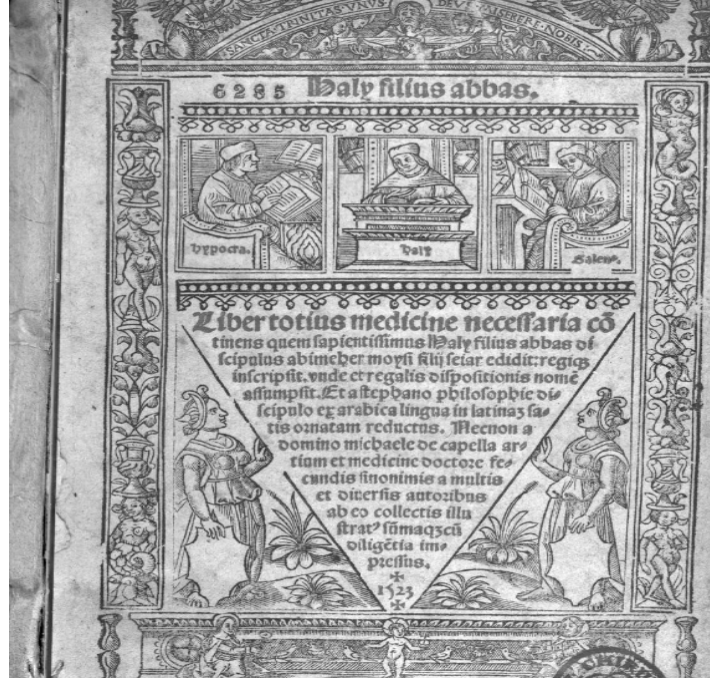 SANCTA·TRINITAS·VNVS DEVS MISERERE·NOBIS
6285 Haly filius abbas.
hypocra. haly Galenꝰ.
Liber totius medicine necessaria cō
tinens quem sapientissimus Haly filius abbas di
scipulus abimeher moysi filij seiar edidit: regiqꝫ
inscripsit. vnde et regalis dispositionis nomē
assumpsit. Et a stephano philosophie di⸗
scipulo ex arabica lingua in latinaꝫ sa⸗
tis ornatam reductus. Necnon a
domino michaele de capella ar⸗
tium et medicine doctore fe⸗
cundis sinonimis a multis
et diuersis autoribus
ab eo collectis illu
stratꝰ sūmaqꝫ cū
diligētia im⸗
pressus.
1523